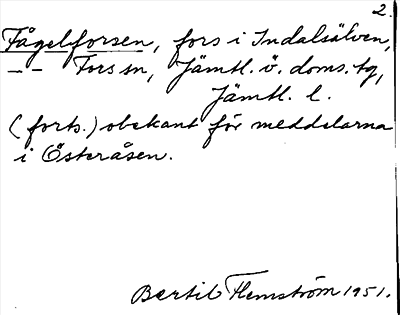 2.
Fågelforsen, fors i Indalsälven,
— – Fors sn, Jämtl. ö. doms. tg,
Jämtl. l.
(forts.) obekant för meddelarna
i Österåsen.
Bertil Flemström 1951.